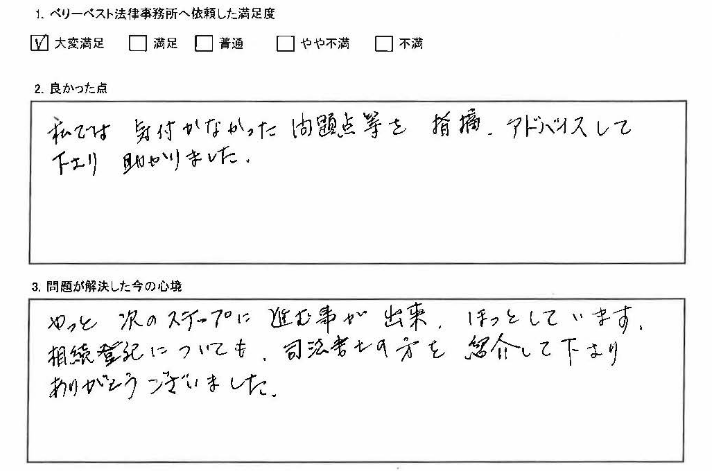 1. ベリーベスト法律事務所へ依頼した満足度
☑ 大変満足 □ 満足 □ 普通 □ やや不満 □ 不満
2. 良かった点
私では 気付かなかった 問題点等を 指摘、アドバイスして
下さり 助かりました。
3. 問題が解決した今の心境
やっと 次のステップに 進む事が 出来、ほっとしています。
相続登記についても、司法書士の方を 紹介して下さり
ありがとうございました。